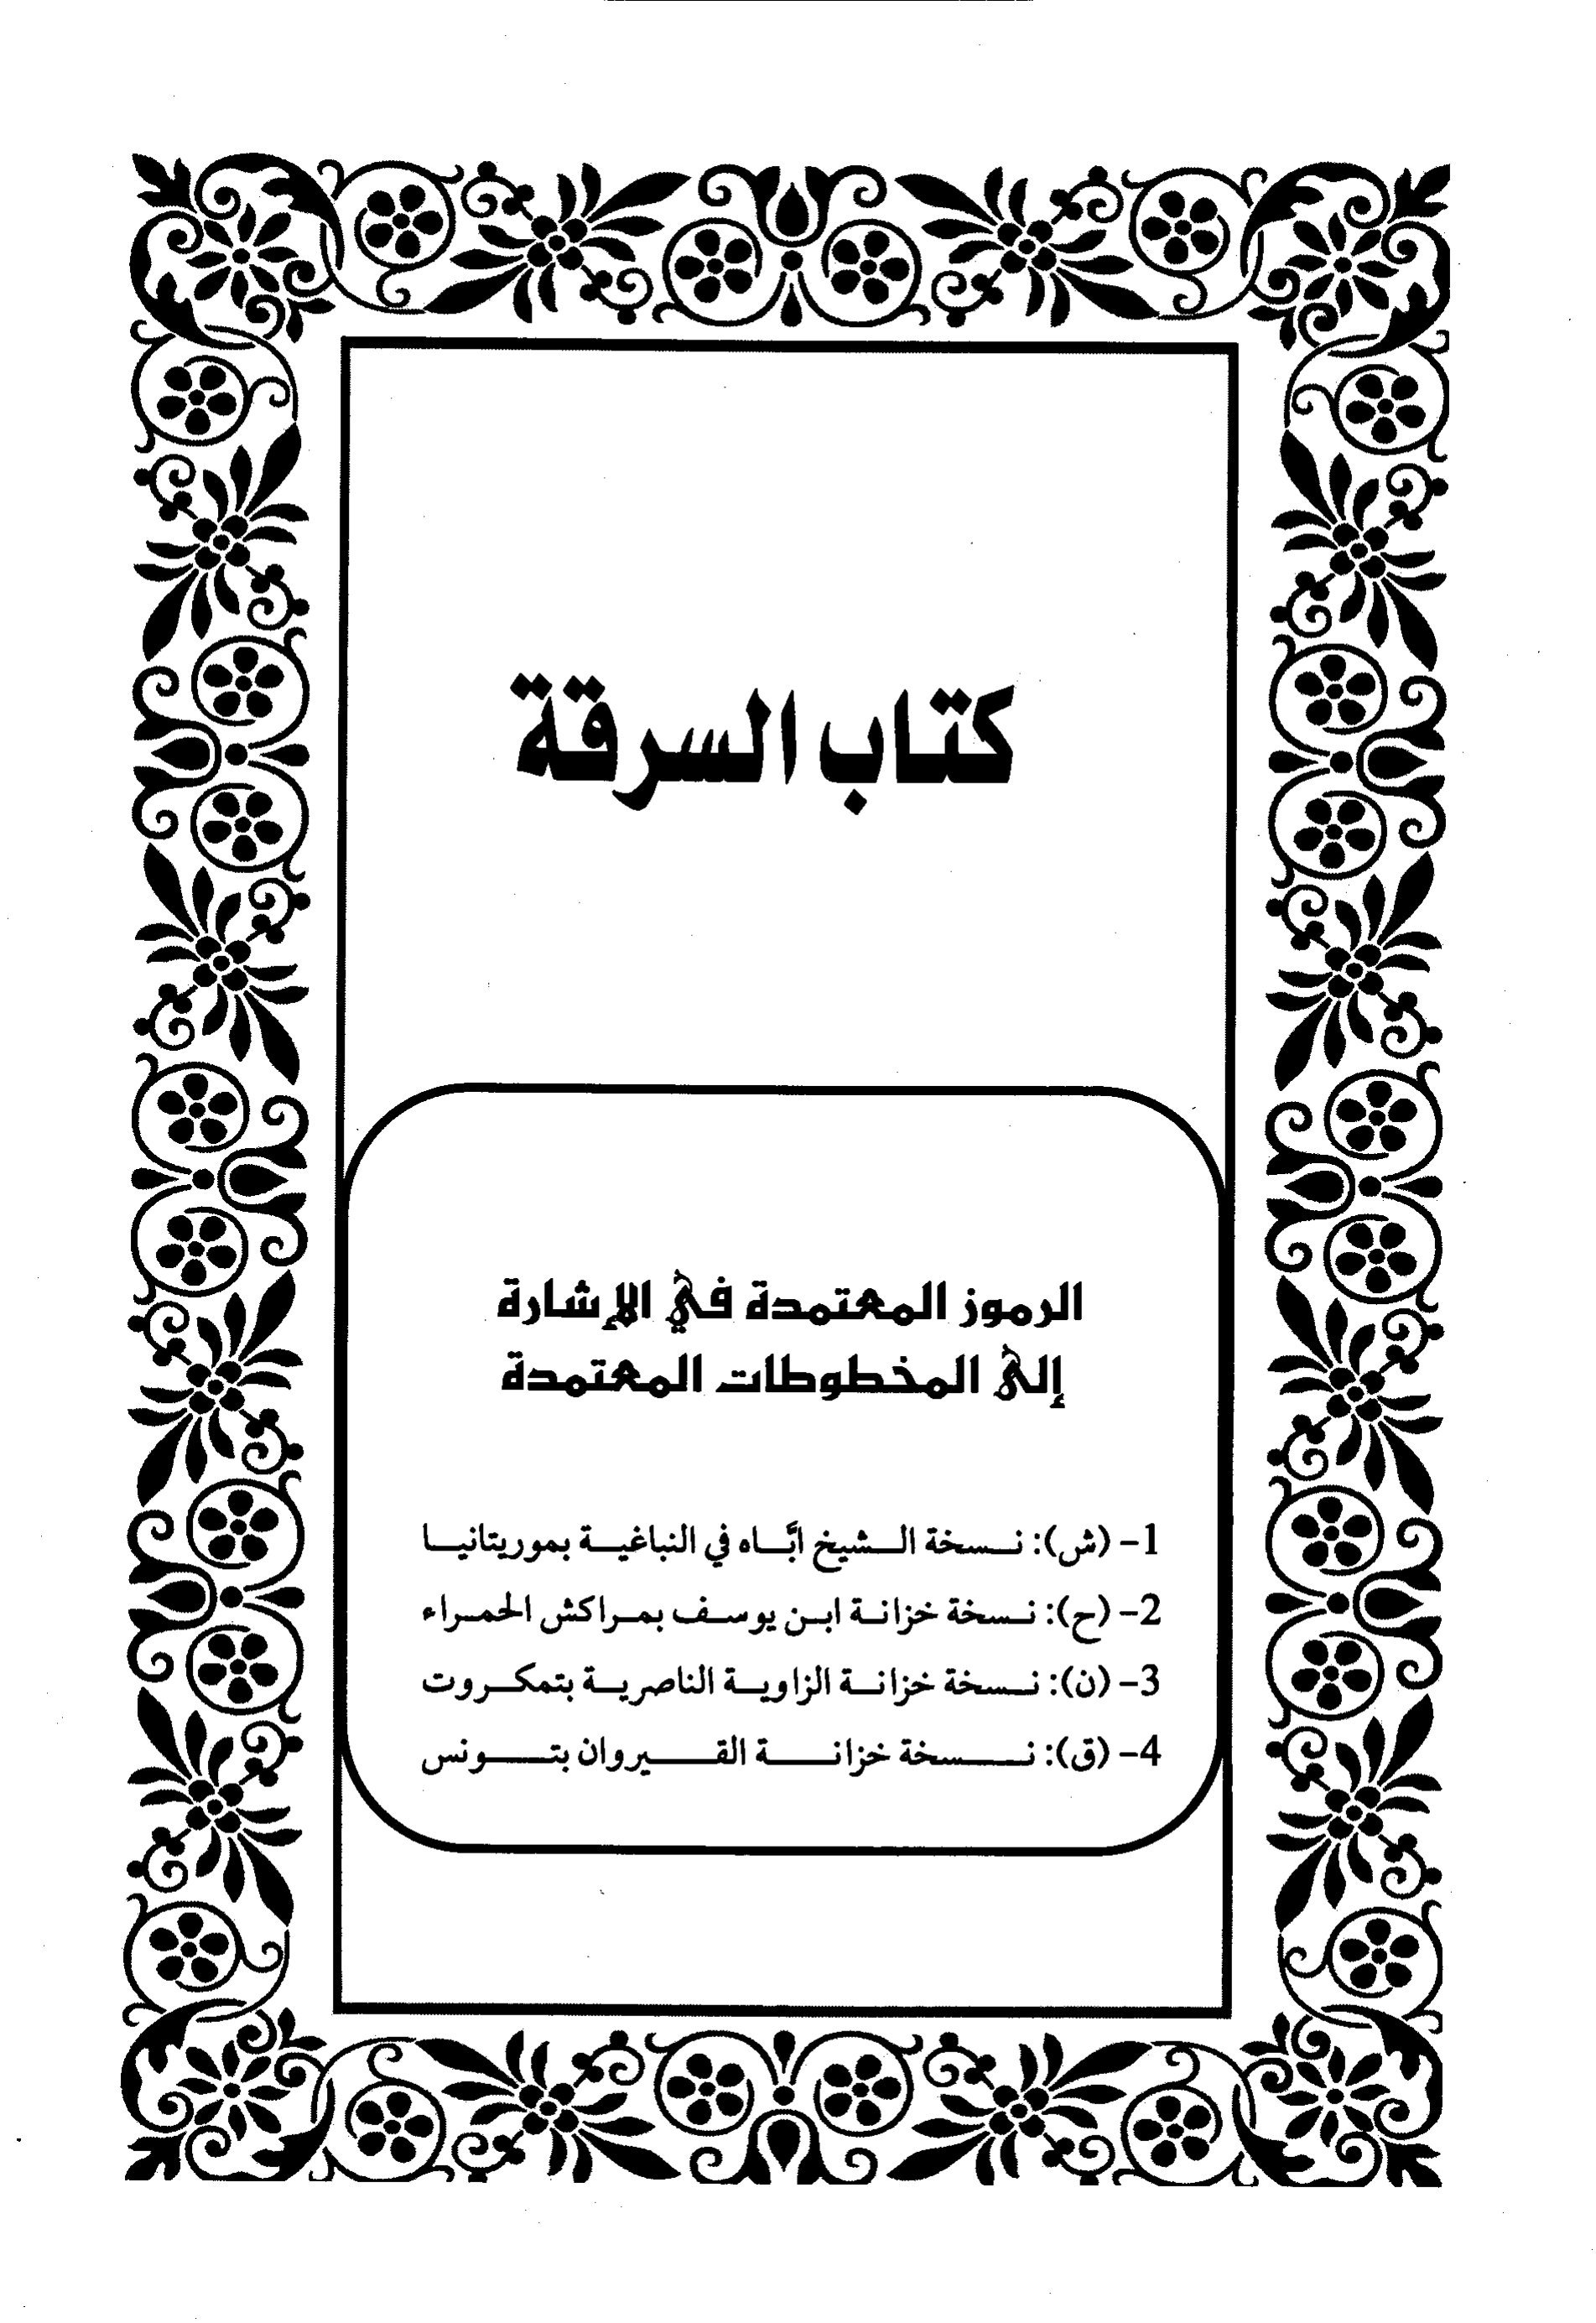 كتاب السرقة
الرموز المعتمدة في الإشارة
إلى المخطوطات المعتمدة
1- (ش): نسخة الشيخ ابَّاه في النباغية بموريتانيا
2- (ح): نسخة خزانة ابن يوسف بمراكش الحمراء
3- (ن): نسخة خزانة الزاوية الناصرية بتمكروت
4- (ق): نسخة خزانة القيروان بتونس